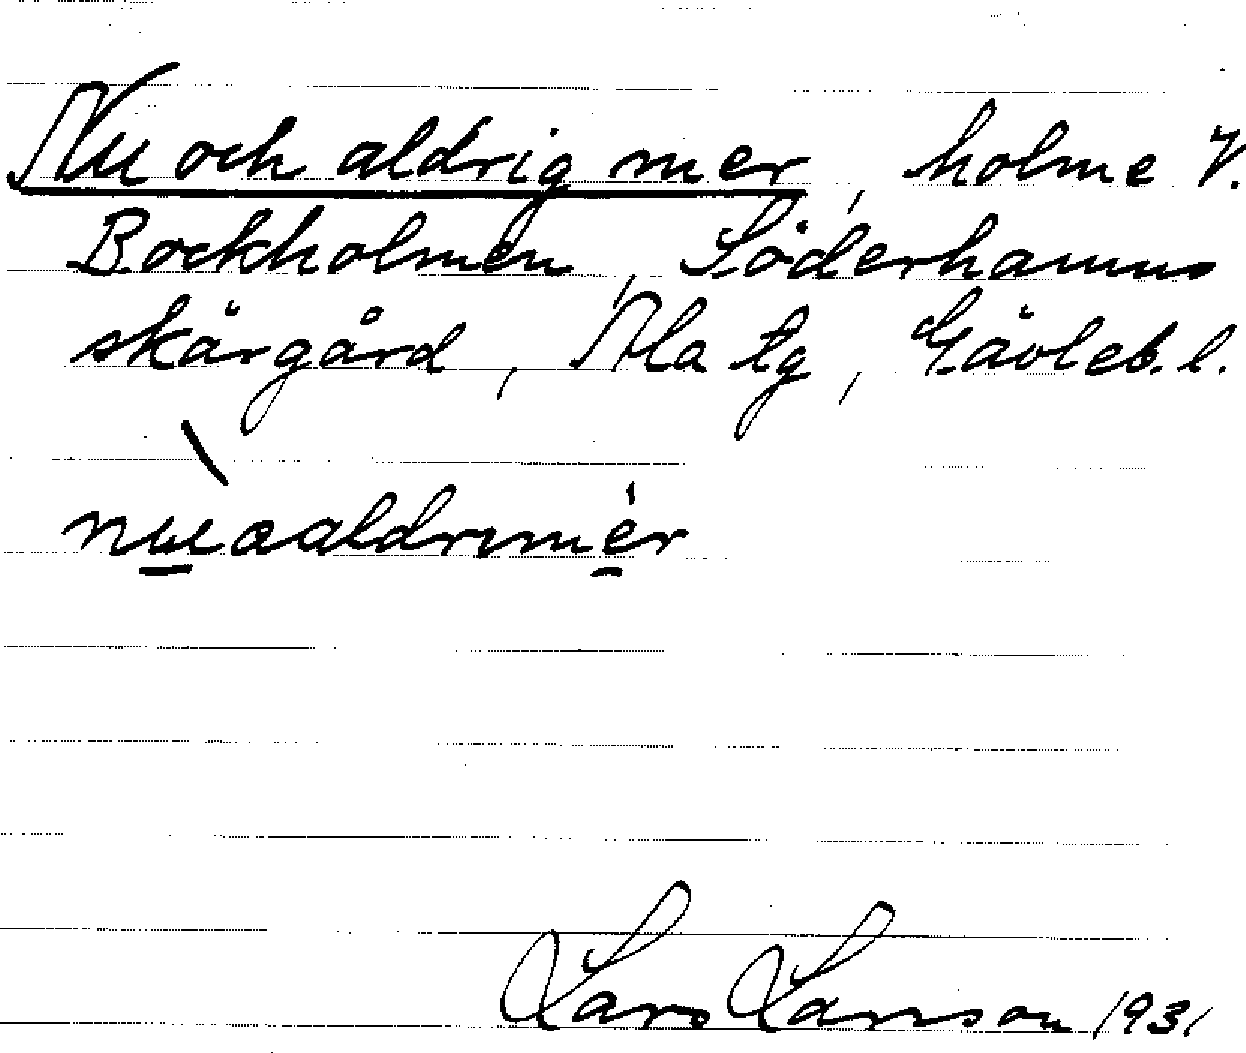 Nu och aldrig mer, holme V.
Bockholmen, Söderhamns
skärgård, Ala tg, Gävleb. l.
Lars Larsson 1931